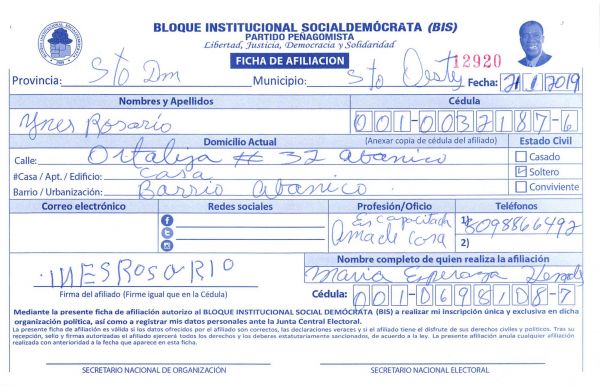 BLOQUE INSTITUCIONAL SOCIALDEMÓCRATA (BIS)
PARTIDO PEÑAGOMISTA
Libertad, Justicia, Democracia y Solidaridad
FICHA DE AFILIACION
12920
Provincia: Sto Dm Municipio: Sto Oeste Fecha: 21 1 2019
Nombres y Apellidos Cédula
Ynes Rosario 001-0032187-6
Domicilio Actual (Anexar copia de cédula del afiliado) Estado Civil
Calle: Ortaliza # 32 abanico Casado
#Casa / Apt. / Edificio: Casa Soltero
Barrio / Urbanización: Barrio Abanico. Conviviente
Correo electrónico Redes sociales Profesión/Oficio Teléfonos
Ama de Casa 1) 8098866492
2)
Nombre completo de quien realiza la afiliación
INES ROSARIO Maria Esperanza
Firma del afiliado (Firme igual que en la Cédula) Cédula: 001-0698108-7
Mediante la presente ficha de afiliación autorizo al BLOQUE INSTITUCIONAL SOCIAL DEMÓCRATA (BIS) a realizar mi inscripción única y exclusiva en dicha
organización política, así como a registrar mis datos personales ante la Junta Central Electoral.
La presente ficha de afiliación es válida si los datos ofrecidos por el afiliado son correctos, las declaraciones veraces y si el afiliado tiene el disfrute de sus derechos civiles y políticos. Tras su
recepción, sello y firmas autorizadas el afiliado ejercerá todos los derechos y los deberes estatutariamente sancionados, de acuerdo a la ley. La presente afiliación anula cualquier afiliación
realizada con anterioridad a la fecha que aparece en esta ficha.
SECRETARIO NACIONAL DE ORGANIZACIÓN SECRETARIO NACIONAL ELECTORAL